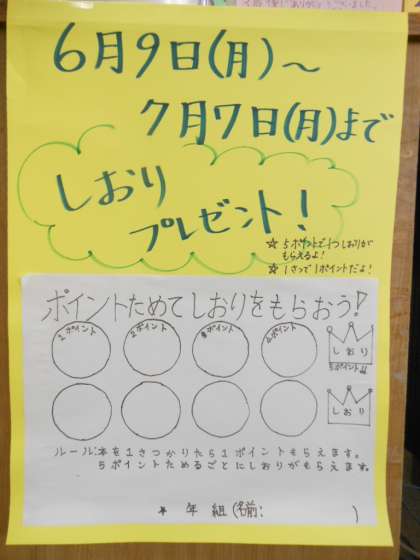 6月9日(月)〜
7月7日(月)まで
しおり
プレゼント!
☆ 5ポイントで1つしおりが
もらえるよ!
☆ 1さつで1ポイントだよ!
ポイントためてしおりをもらおう!
1ポイント 2ポイント 3ポイント 4ポイント しおり
5ポイント
しおり
ルール:本を1さつかりたら1ポイントもらえます。
5ポイントためるごとにしおりがもらえます。
年 組(名前: )